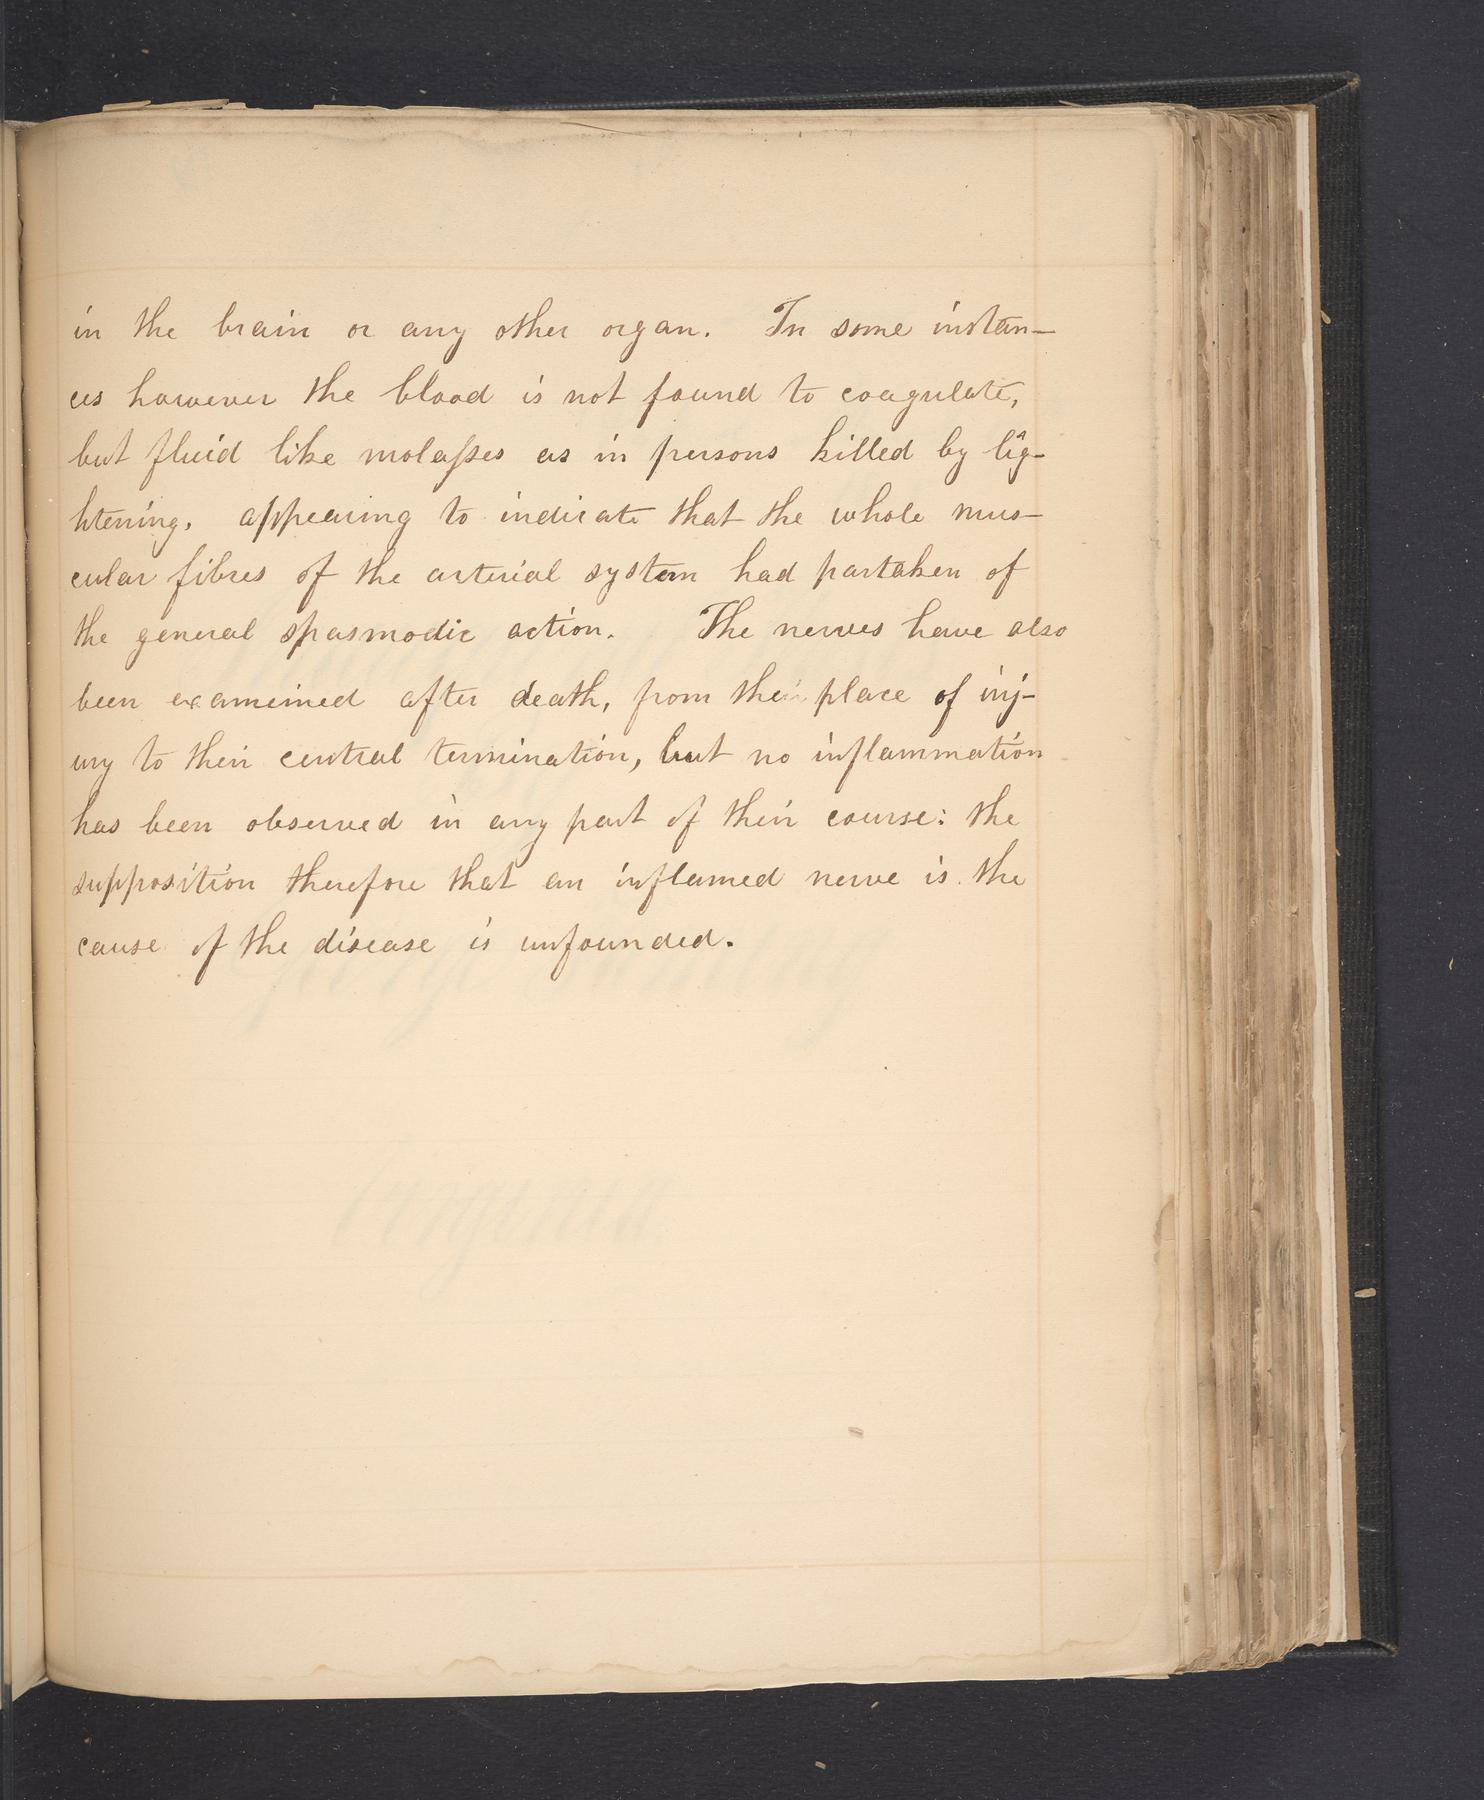 in the brain or any other organ. In some instan-
ces however the blood is not found to coagulate,
but fluid like molaſses as in persons killed by lig-
htening. appearing to indicate that the whole mus-
cular fibres of the arterial system had partaken of
the general spasmodic action. The nerves have also
been exameined after death, from their place of inj-
ury to their central termination, but no inflammation
has been observed in any part of their course: the
supposition therefore that an inflamed nerve is the
cause of the disease is unfounded.
Virginia